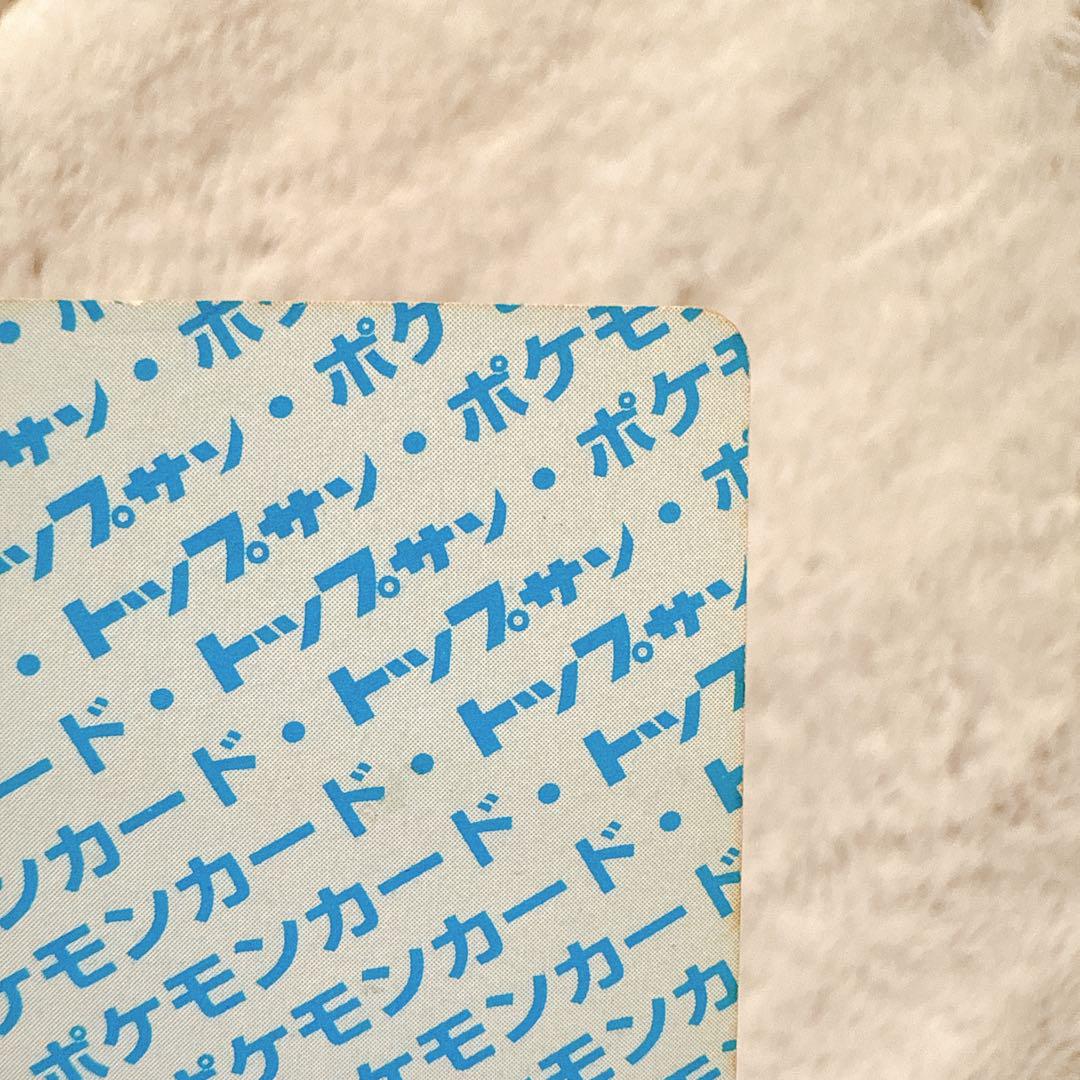 ・ポ
サン・ポケ
ップサン・ポケ
・トップサン・ポケモ
ード・トップサン・ポケモ
ンカード・トップサン・ポ
ケモンカード・トップサン
ポケモンカード・トップ
ポケモンカード・ト
ケモンカード
モンカ